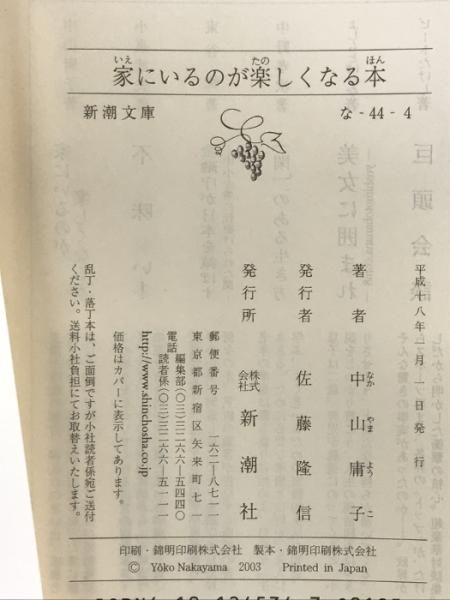 家にいるのが楽しくなる本
いえ たの ほん
新潮文庫
な-44-4
平成十八年二月一日発行
著者 中山庸子
なか やま よう こ
発行者 佐藤隆信
発行所 株式会社 新潮社
郵便番号 一六二―八七一一
東京都新宿区矢来町七一
電話 編集部(〇三)三二六六―五四四〇
読者係(〇三)三二六六―五一一一
http://www.shinchosha.co.jp
価格はカバーに表示してあります。
乱丁・落丁本は、ご面倒ですが小社読者係宛ご送付
ください。送料小社負担にてお取替えいたします。
印刷・錦明印刷株式会社 製本・錦明印刷株式会社
© Yōko Nakayama 2003 Printed in Japan